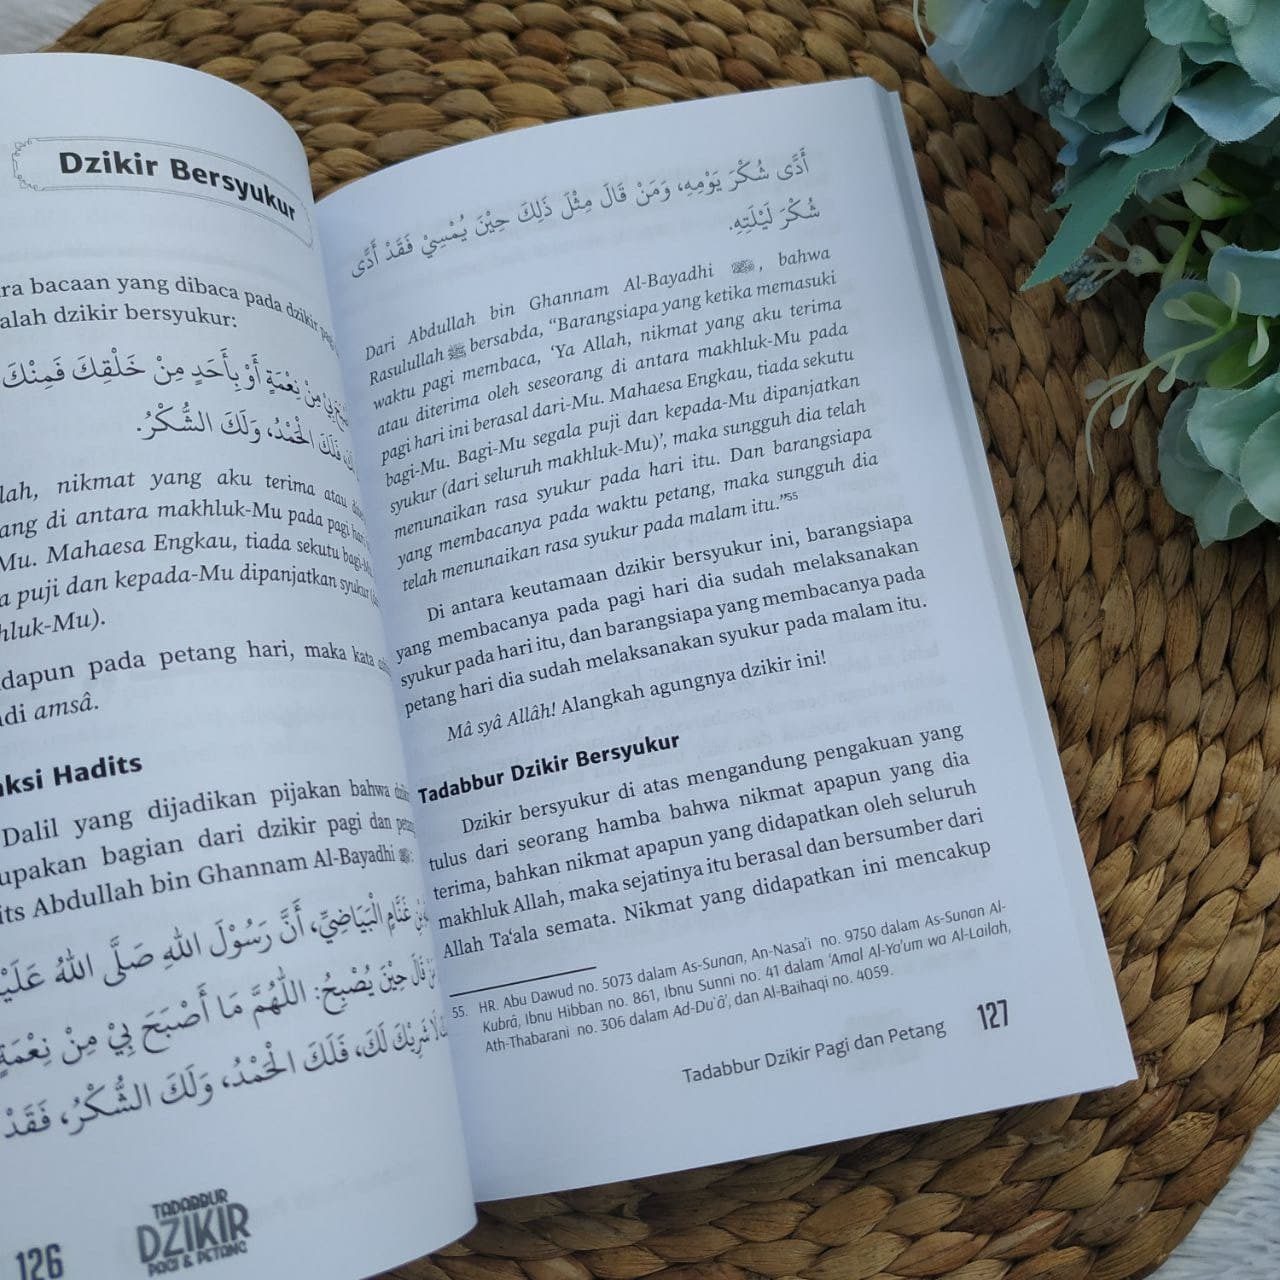 Dzikir Bersyukur
bacaan yang dibaca pada dzikir
alah dzikir bersyukur:
مِنْ نِعْمَةٍ أَوْ بِأَحَدٍ مِنْ خَلْقِكَ فَمِنْكَ
فَلَكَ الْحَمْدُ، وَلَكَ الشُّكْرُ.
lah, nikmat yang aku terima atau
ang di antara makhluk-Mu pada pagi
Mu. Mahaesa Engkau, tiada sekutu bagi-
a puji dan kepada-Mu dipanjatkan syukur
hluk-Mu).
dapun pada petang hari, maka kata
adi amsâ.
ksi Hadits
Dalil yang dijadikan pijakan bahwa
upakan bagian dari dzikir pagi dan
its Abdullah bin Ghannam Al-Bayadhi
غَنَّامٍ الْبَيَاضِيِّ، أَنَّ رَسُوْلَ اللهِ صَلَّى اللهُ عَلَيْ
قَالَ حِيْنَ يُصْبِحُ: اللّٰهُمَّ مَا أَصْبَحَ بِيْ مِنْ نِعْمَةٍ
لَا شَرِيْكَ لَكَ، فَلَكَ الْحَمْدُ، وَلَكَ الشُّكْرُ، فَقَدْ
126
TADABBUR
DZIKIR
PAGI & PETANG
أَدَّى شُكْرَ يَوْمِهِ، وَمَنْ قَالَ مِثْلَ ذَلِكَ حِيْنَ يُمْسِيْ فَقَدْ أَدَّى
شُكْرَ لَيْلَتِهِ.
Dari Abdullah bin Ghannam Al-Bayadhi , bahwa
Rasulullah ﷺ bersabda, “Barangsiapa yang ketika memasuki
waktu pagi membaca, ‘Ya Allah, nikmat yang aku terima
atau diterima oleh seseorang di antara makhluk-Mu pada
pagi hari ini berasal dari-Mu. Mahaesa Engkau, tiada sekutu
bagi-Mu. Bagi-Mu segala puji dan kepada-Mu dipanjatkan
syukur (dari seluruh makhluk-Mu)’, maka sungguh dia telah
menunaikan rasa syukur pada hari itu. Dan barangsiapa
yang membacanya pada waktu petang, maka sungguh dia
telah menunaikan rasa syukur pada malam itu.”55
Di antara keutamaan dzikir bersyukur ini, barangsiapa
yang membacanya pada pagi hari dia sudah melaksanakan
syukur pada hari itu, dan barangsiapa yang membacanya pada
petang hari dia sudah melaksanakan syukur pada malam itu.
Mâ syâ Allâh! Alangkah agungnya dzikir ini!
Tadabbur Dzikir Bersyukur
Dzikir bersyukur di atas mengandung pengakuan yang
tulus dari seorang hamba bahwa nikmat apapun yang dia
terima, bahkan nikmat apapun yang didapatkan oleh seluruh
makhluk Allah, maka sejatinya itu berasal dan bersumber dari
Allah Ta‘ala semata. Nikmat yang didapatkan ini mencakup
55. HR. Abu Dawud no. 5073 dalam As-Sunan, An-Nasa’i no. 9750 dalam As-Sunan Al-
Kubrâ, Ibnu Hibban no. 861, Ibnu Sunni no. 41 dalam ‘Amal Al-Ya’um wa Al-Lailah,
Ath-Thabarani no. 306 dalam Ad-Du`â’, dan Al-Baihaqi no. 4059.
Tadabbur Dzikir Pagi dan Petang 127